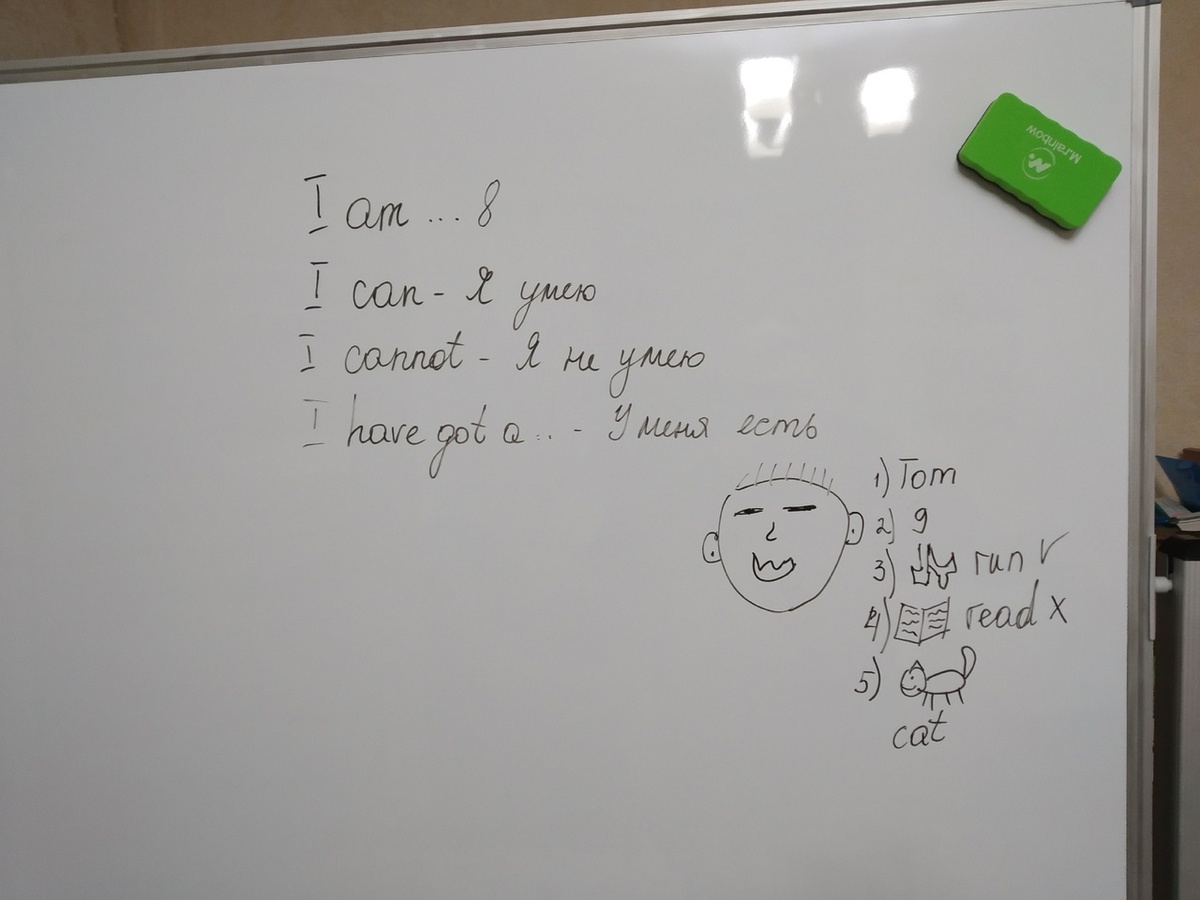 M.rainbow
I am ... 8
I can - Я умею
I cannot - Я не умею
I have got a... - У меня есть
1) Tom
2) 9
3) run V
4) read x
5)
cat